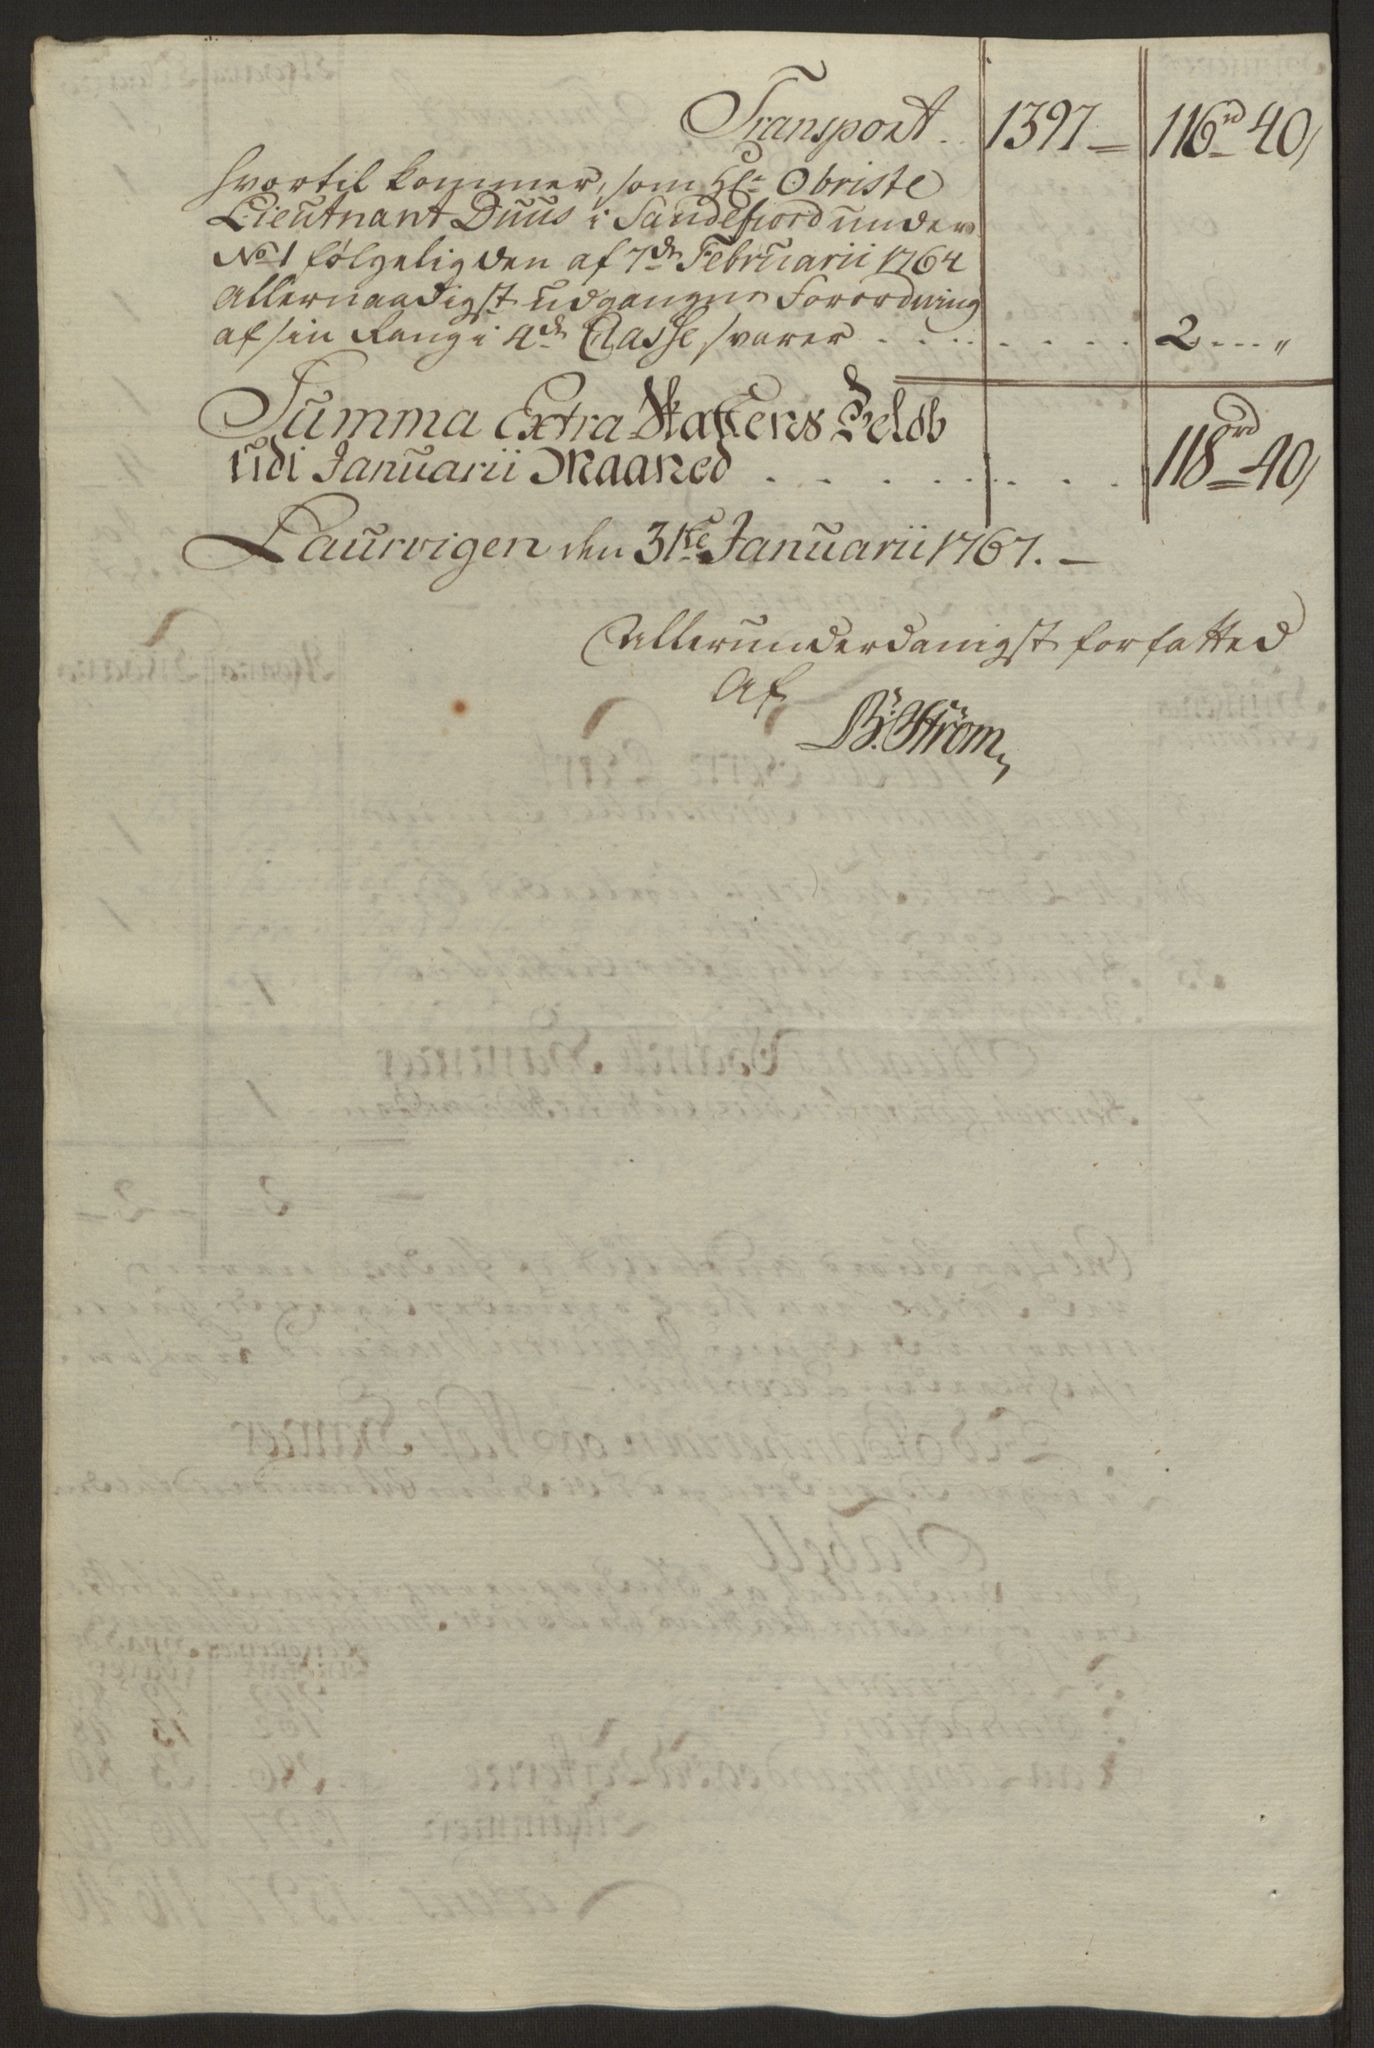 Transport. 1397 — 116 rd 40
hvortil kommer, som Hr. Obriste
Lieutnant Duus i Sandefiord under
No 1 følgelig den af 7de Februarii 1764
allernaadigst udgangne Forordning
af sin Rang i 4de Classe svarer . . . . . . . 2 . . . "
Summa Extra Skattens Beløb
udi Januarii Maaned . . . . . . . . 118 rd 40
Laurvigen den 31te Januarii 1767. —
Allerunderdanigst forfatted
Af
B: Strøm